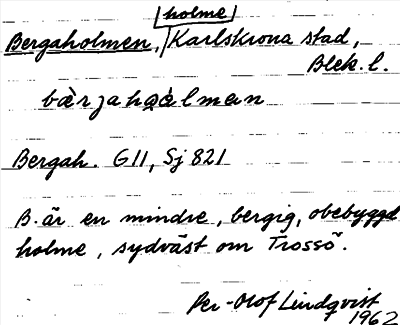 holme
Bergaholmen, Karlskrona stad,
Blek. l.
bærjahoàlman
Bergah. G11, Sj 821
B. är en mindre, bergig, obebyggd
holme, sydväst om Trossö.
Per-Olof Lindqvist
1962